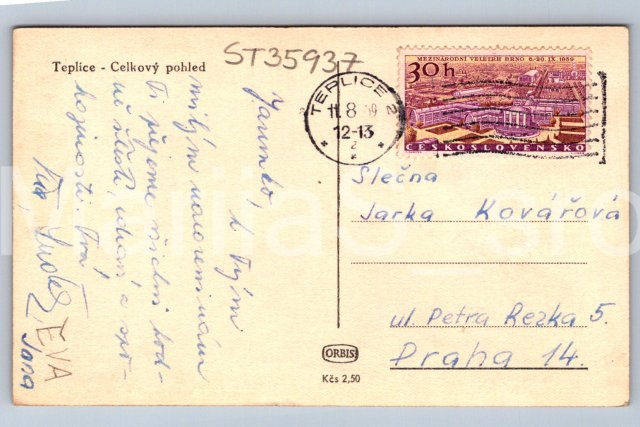 Teplice - Celkový pohled
ST35937
MEZINÁRODNÍ VELETRH BRNO 6.-20. IX. 1959
30h
ČESKOSLOVENSKO
TEPLICE 2
11.8 59
12-13
2
Jarunko,
k Tvým
milým narozeninám
Ti přejeme všichni hod-
ně štěstí,
kojenosti. Tvá
EVA
Jana
Slečna
Jarka Kovářová
ul. Petra Rezka 5.
Praha 14.
ORBIS
Kčs 2,50